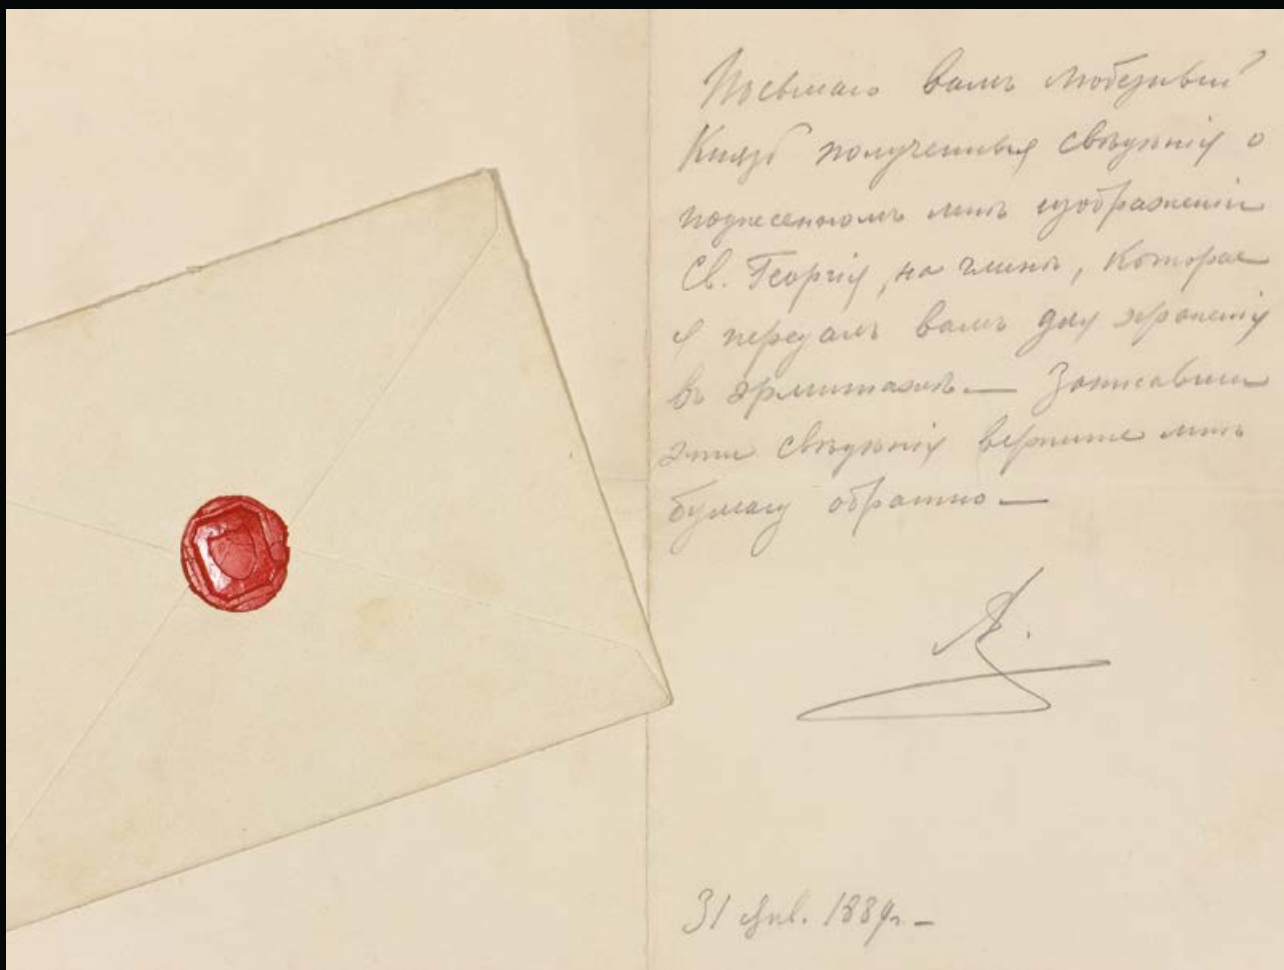 Посылаю Вамъ любезный
Князь полученныя свѣдѣнія о
поднесенномъ мнѣ изображеніи
Св. Георгія, на глинѣ, которое
я передалъ Вамъ для храненія
въ Эрмитажѣ. —  Записавши
эти свѣдѣнія верните мнѣ
бумагу обратно —
А.
31 Янв. 1889г. —